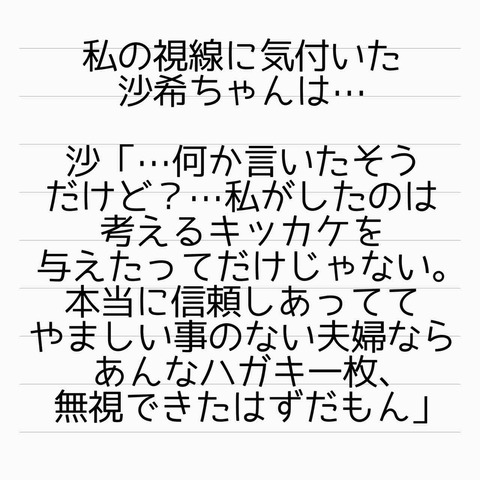 私の視線に気付いた
沙希ちゃんは…
沙「…何か言いたそう
だけど？…私がしたのは
考えるキッカケを
与えたってだけじゃない。
本当に信頼しあってて
やましい事のない夫婦なら
あんなハガキ一枚、
無視できたはずだもん」